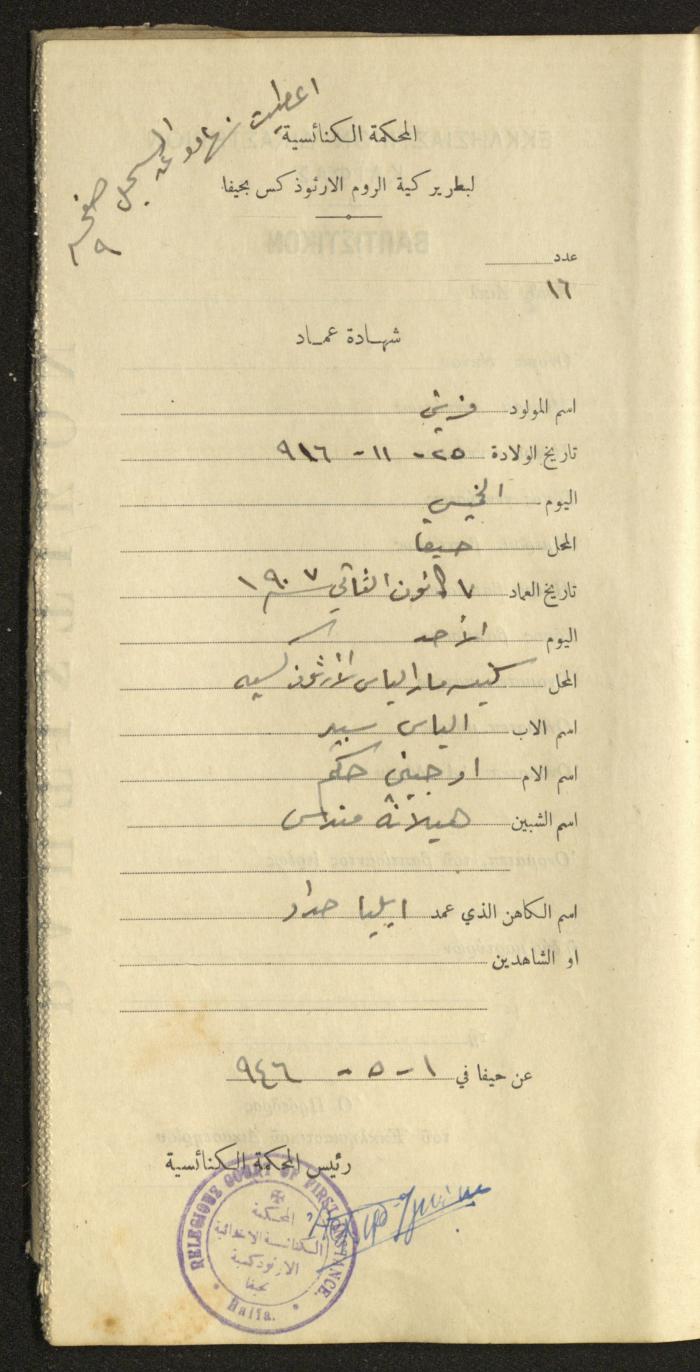 اعطيت
السجل
صفحه
٩
المحكمة الكنائسية
لبطريركية الروم الارثوذكس بحيفا
عدد
١٦
شهادة عماد
اسم المولود
تاريخ الولادة ٢٥ - ١١ - ٩١٦
اليوم الخميس
المحل حيفا
تاريخ العماد ٧ كانون الثاني سنة ١٩٠٧
اليوم الأحد
المحل كنيسه مار الياس الأرثوذكسيه
اسم الاب الياس
اسم الام اوجيني حكيم
اسم الشبين هيلانة
اسم الكاهن الذي عمد ايليا حداد
او الشاهدين
عن حيفا في ١ - ٥ - ٩٤٦
رئيس المحكمة الكنائسية
RELEGIOUS COURT OF FIRST INSTANCE.
المحكمة
الكنائسية الابتدائية
الارثوذكسية
بحيفا
Haifa.